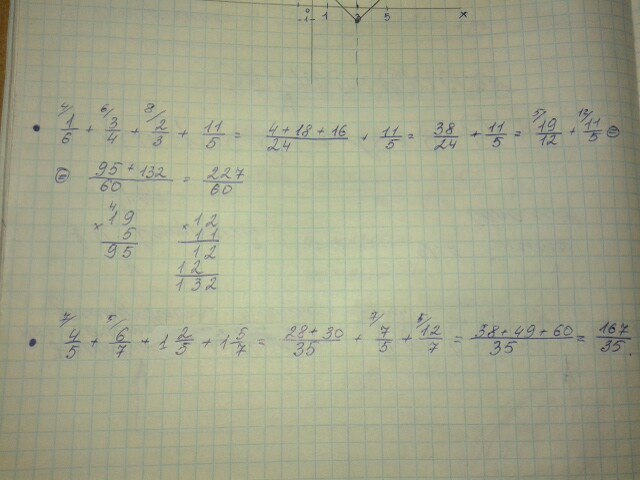 -1 0 1 3 5 x
• 4/ 1/6 + 6/ 3/4 + 8/ 2/3 + 11/5 = (4+18+16)/24 + 11/5 = 38/24 + 11/5 = 5/ 19/12 + 12/ 11/5 ⊜
⊜ (95+132)/60 = 227/60
4
× 19 × 12
5 11
95 12
12
132
• 7/ 4/5 + 5/ 6/7 + 1 2/5 + 1 5/7 = (28+30)/35 + 7/ 7/5 + 5/ 12/7 = (38+49+60)/35 = 167/35.